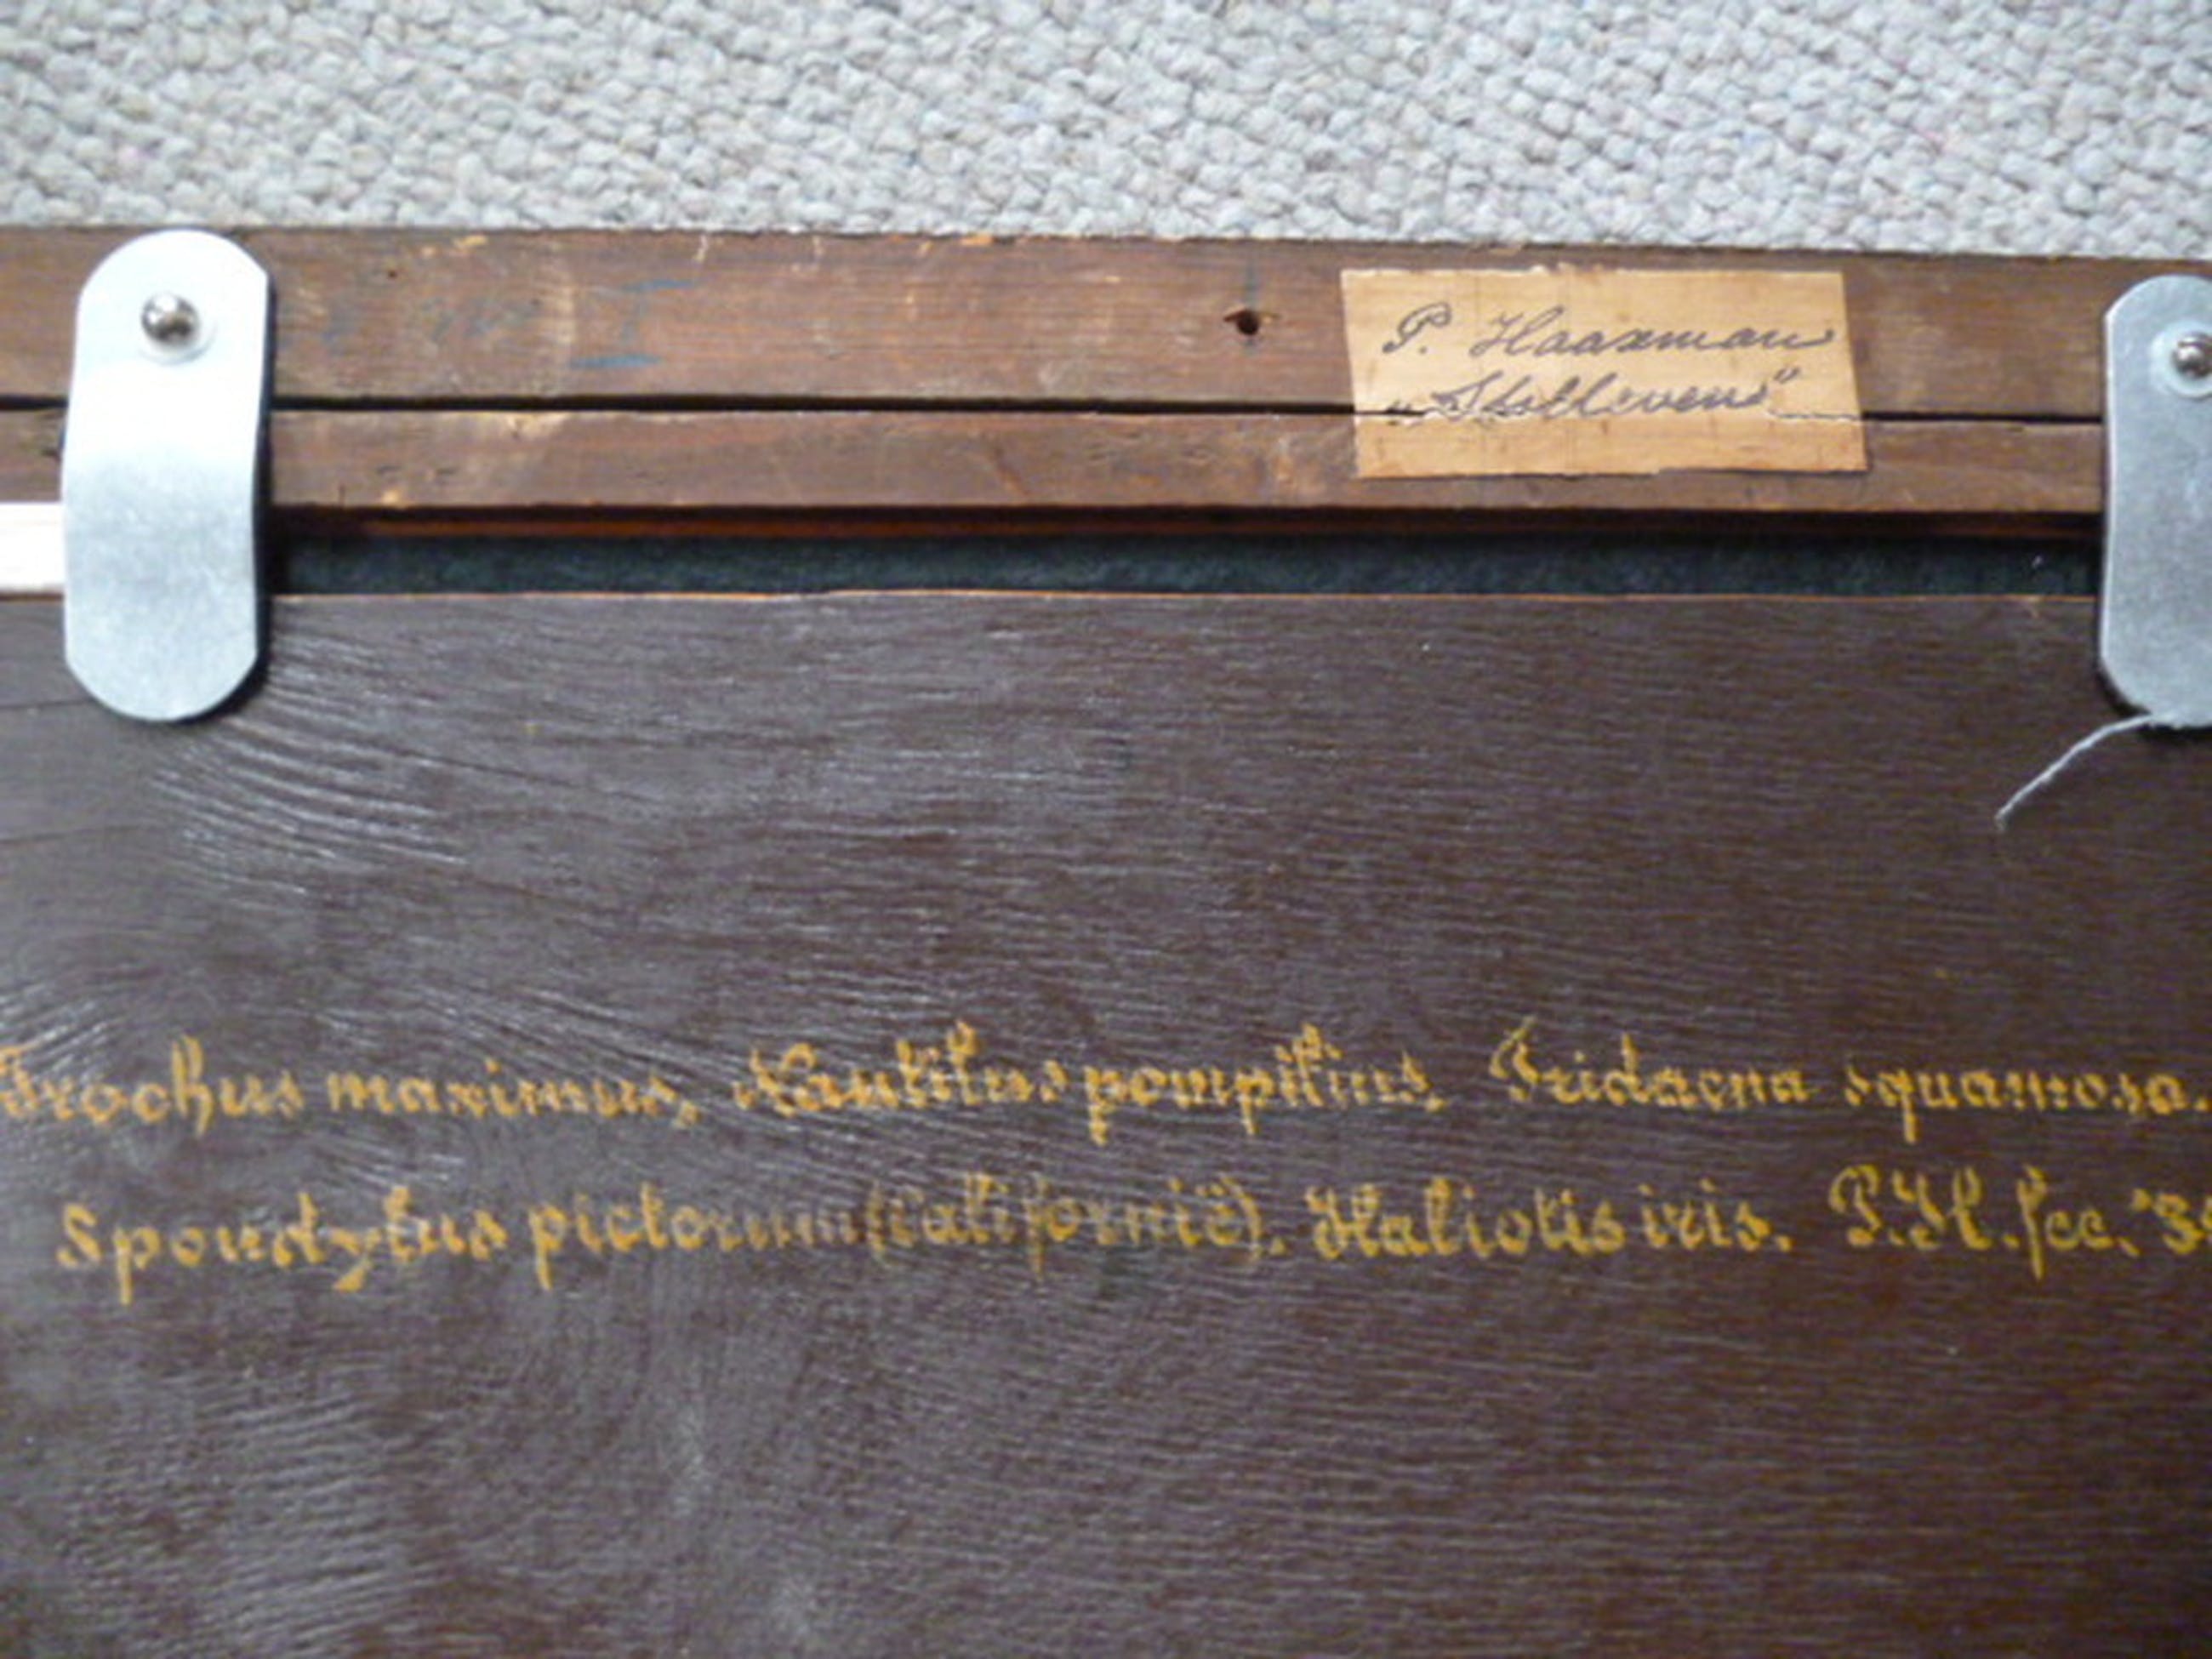 P. Haaxman
„Stillevens"
Trochus maximus, Nautilus pompilius, Tridacna squamosa.
Spondylus pictorum (Californië). Haliotis iris. P.H. fec.